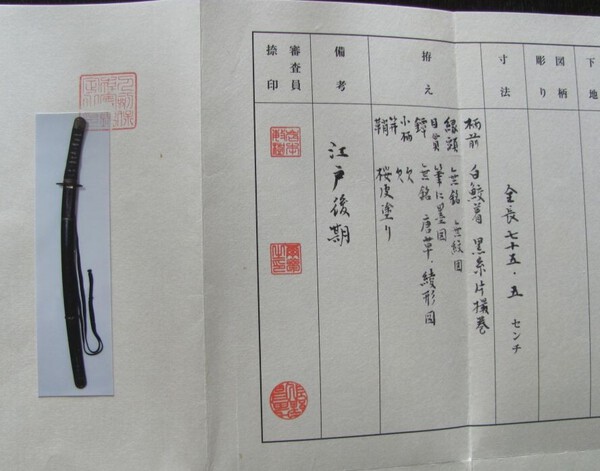 下地
図柄
彫り
寸法
全長七十五・五 センチ
拵え
柄前 白鮫着 黒糸片撮巻
縁頭 無銘 無紋図
目貫 筆に墨図
鐔 無銘 唐草・綾形図
小柄 欠
笄 欠
鞘 桜皮塗り
備考
江戸後期
審査員
捺印